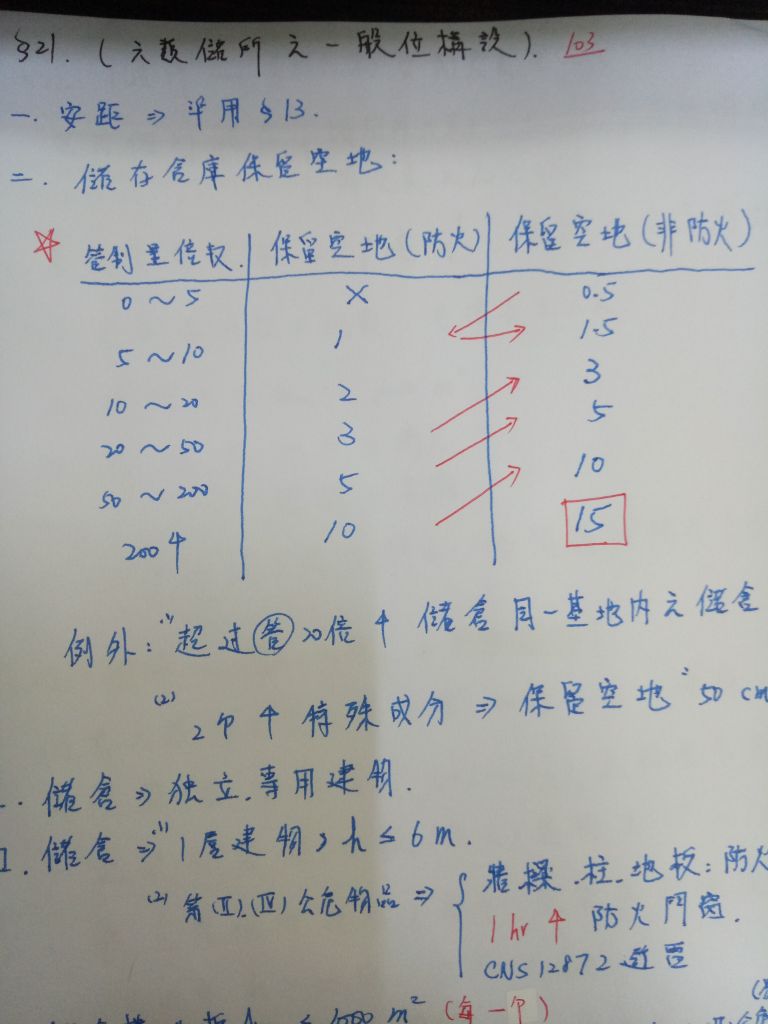 §21. (六類儲所之一般位構設). 103
一. 安距 ⇒ 準用§13.
二. 儲存倉庫保留空地:
☆ 管制量倍数. 保留空地(防火) 保留空地(非防火)
0~5 × 0.5
5~10 1 1.5
10~20 2 3
20~50 3 5
50~200 5 10
200↑ 10 15
例外: (1) 超过管20倍↑ 儲倉同一基地内之儲倉
(2) 2个↑特殊成分 ⇒ 保留空地 50 cm
儲倉 ⇒ 独立.専用建物.
儲倉 ⇒ (1) 1層建物, h ≤ 6 m.
(2) 第(Ⅱ).(Ⅳ)公危物品 ⇒ 牆.樑.柱.地板: 防火
1 hr ↑ 防火門窗.
CNS 12872
m² (每一个)